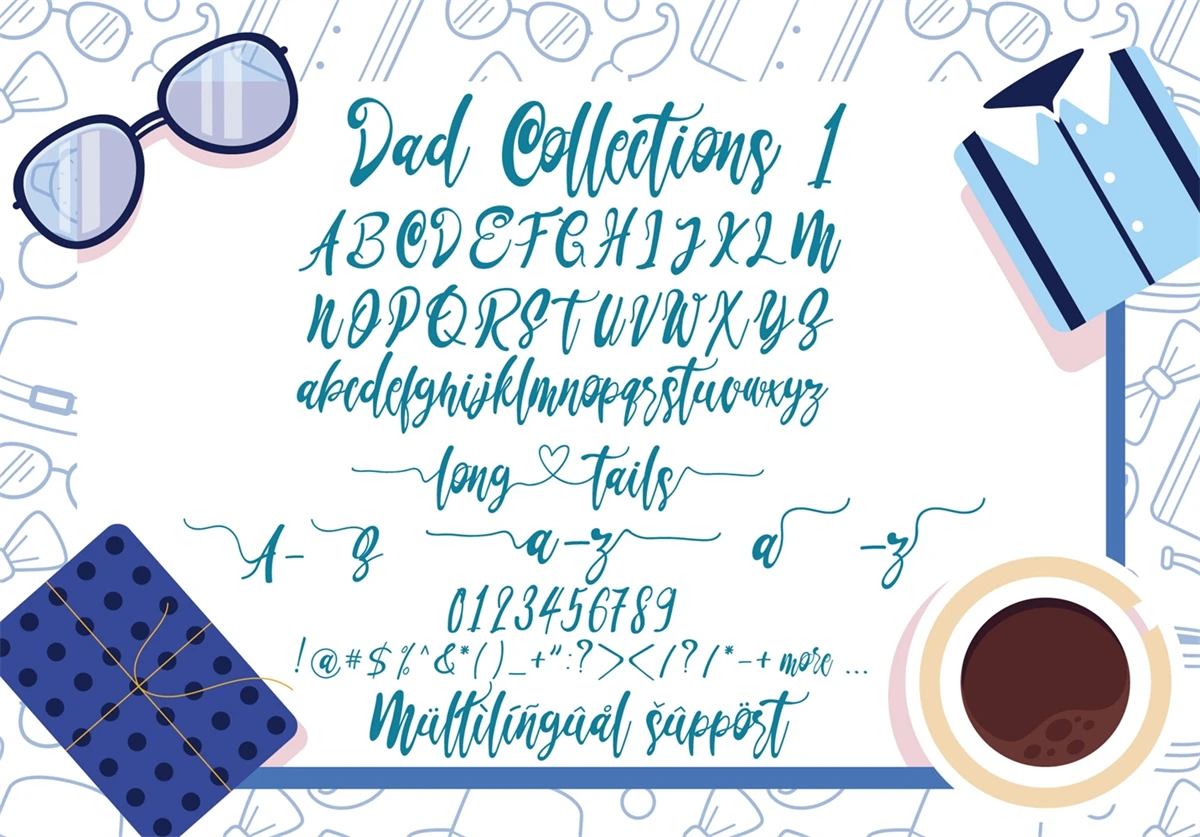 Dad Collections 1
ABCDEFGHIJKLM
NOPQRSTUVWXYZ
abcdefghijklmnopqrstuvwxyz
long tails
A-Z a-z a -z
0123456789
!@#$%^&*()_+“:?><​/?/*-+ more ...
Mültìlíñgûål šûppört